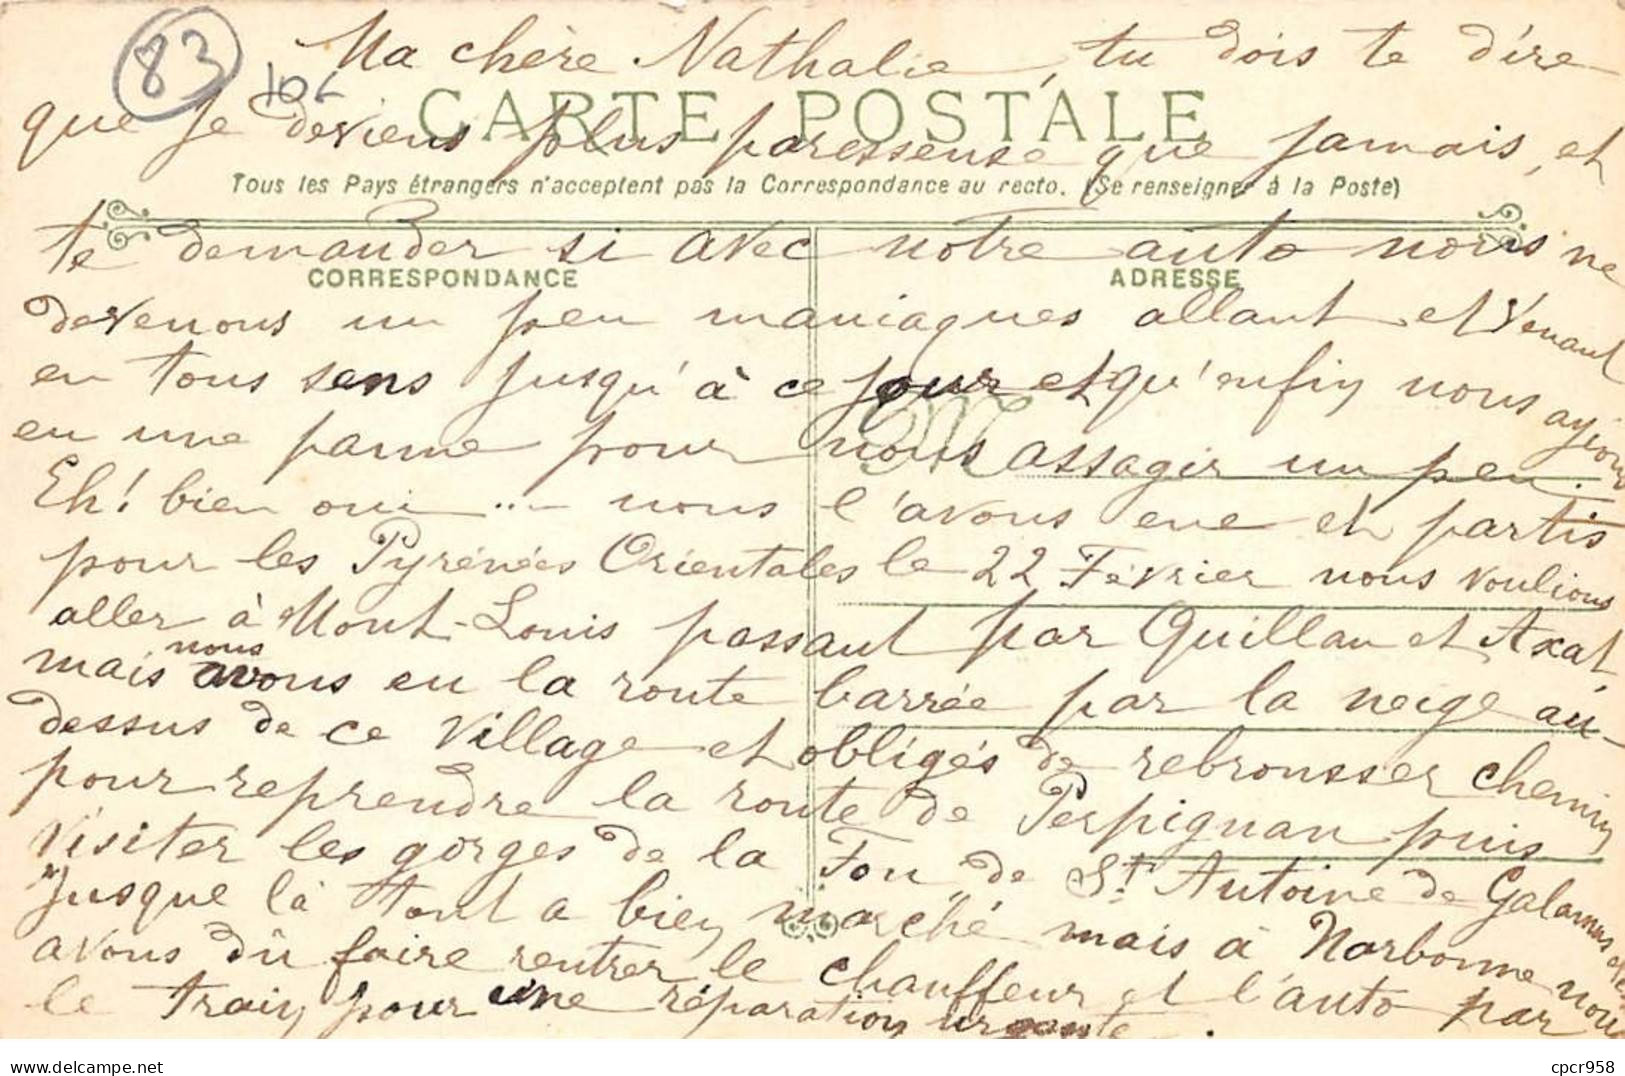 83
106
Ma chère Nathalie, tu dois te dire
CARTE POSTALE
que je deviens plus paresseuse que jamais, et
Tous les Pays étrangers n'acceptent pas la Correspondance au recto. (Se renseigner à la Poste)
te demander si avec notre auto nous ne
CORRESPONDANCE
ADRESSE
devenons un peu maniaques allant et venant
en tous sens jusqu'à ce jour et qu'enfin nous ayions
eu une panne pour nous assagir un peu.
Eh! bien oui ... nous l'avons eue et partis
pour les Pyrénées Orientales le 22 Février nous voulions
aller à Mont-Louis passant par Quillan et Axat,
mais nous avons eu la route barrée par la neige au-
dessus de ce village et obligés de rebrousser chemin
pour reprendre la route de Perpignan puis
visiter les gorges de la Fou, de St Antoine de Galamus etc
Jusque là tout a bien marché mais à Narbonne nous
avons dû faire rentrer le chauffeur et l'auto par
le train pour une réparation urgente.
delcampe.net
cpcr958